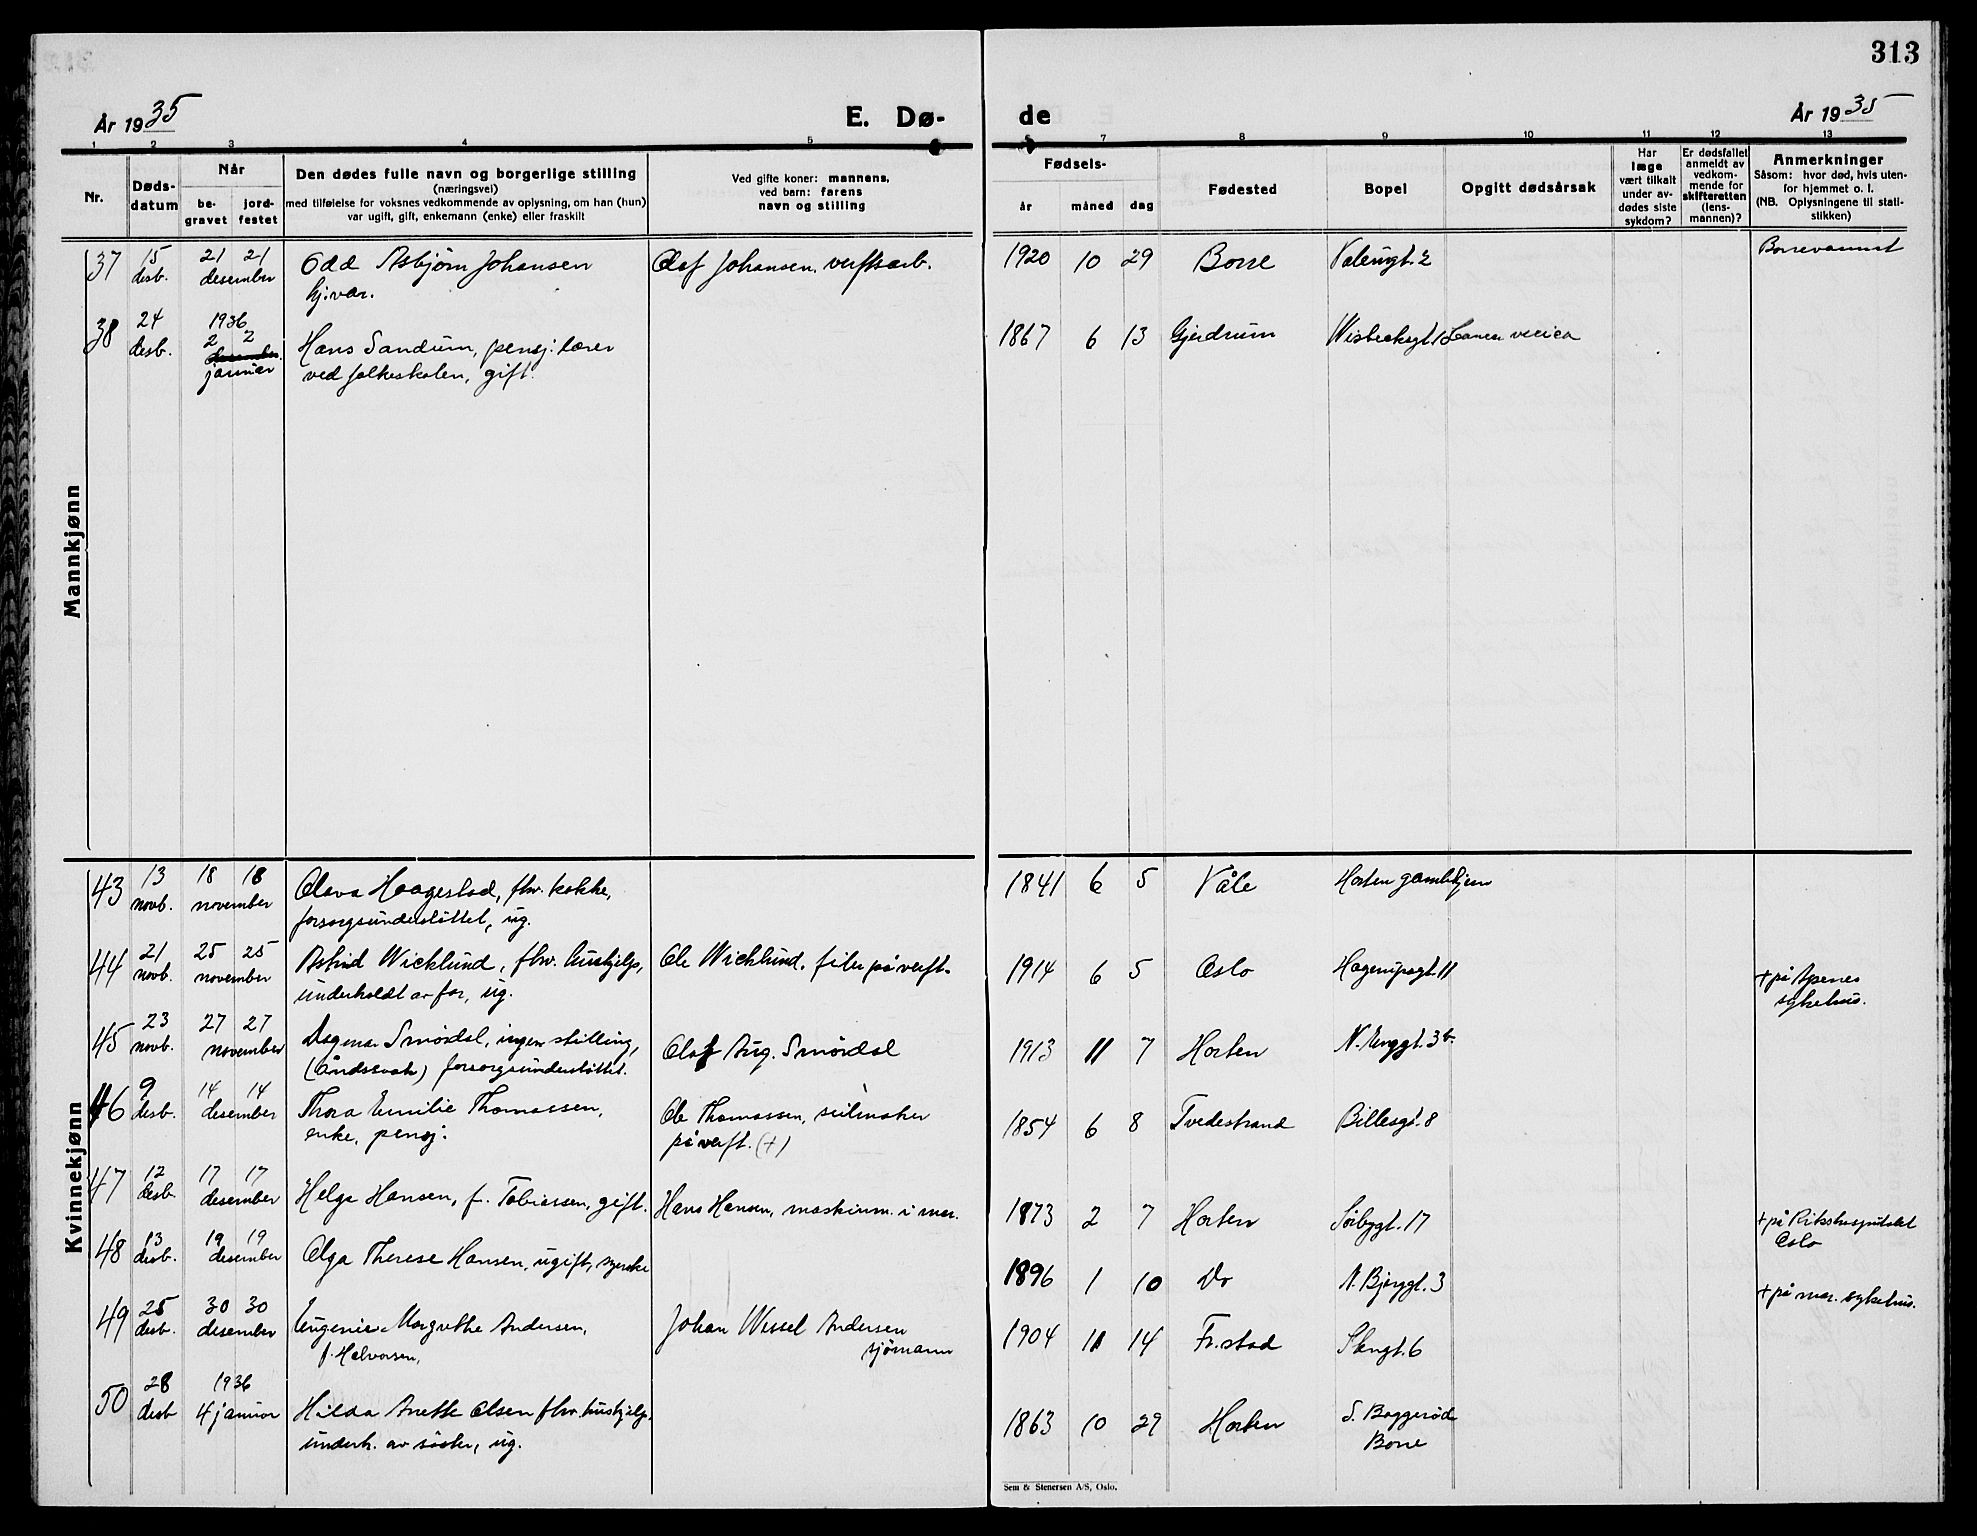 313
År 1935
E. Dø-
de
År 1935
1 2 3 4 5 6 7 8 9 10 11 12 13
Nr.
Døds-
datum
Når
be-
gravet
jord-
festet
Den dødes fulle navn og borgerlige stilling
(næringsvei)
med tilføielse for voksnes vedkommende av oplysning, om han (hun)
var ugift, gift, enkemann (enke) eller fraskilt
Ved gifte koner: mannens,
ved barn: farens
navn og stilling
Fødsels-
år måned dag
Fødested
Bopel
Opgitt dødsårsak
Har
læge
vært tilkalt
under av-
dødes siste
sykdom?
Er dødsfallet
anmeldt av
vedkom-
mende for
skifteretten
(lens-
mannen)?
Anmerkninger
Såsom: hvor død, hvis uten-
for hjemmet o. l.
(NB. Oplysningene til stati-
stikken)
Mannkjønn
37 15 21 21 Odd Asbjørn Johansen Olaf Johansen, verftsarb. 1920 10 29 Borre Valeurgt. 2 Borrevannet
desb. desember
hj.vær.
38 24 1936
desb. 2 2 Hans Sandum, pensj. lærer 1867 6 13 Gjerdrum
januar ved folkeskolen, gift.
Kvinnekjønn
43 13 18 18 Olava Haagestad, fhv. kokke, 1841 6 5 Våle Horten gamlehjem
novb. november
forsorgsunderstöttet, ug.
44 21 25 25 Astrid Wicklund, fhv. hushjelp, Ole Wicklund. filer på verft. 1914 6 5 Oslo Hagerupsgt. 11 + på Apenes
novb. november
underholdt av far, ug. sykehus.
45 23 27 27 Dagmar Smørdal, ingen stilling, Olaf Aug. Smørdal 1913 11 7 Horten N. Enggt. 3 b.
novb. november
(åndssvak) forsorgsunderstöttet.
46 9 14 14 Thora Emilie Thomassen, Ole Thomassen, seilmaker 1854 6 8 Tvedestrand Billesgt. 8
desb. desember
enke, pensj. på verft. (+)
47 12 17 17 Helga Hansen, f. Tobiassen, gift. Hans Hansen, maskinm. i mar. 1873 2 7 Horten Sörbygt. 17 + på Rikshospitalet
desb. desember Oslo
48 13 19 19 Olga Therese Hansen, ugift, syerske 1896 1 10 Do N. Bjerggt. 3
desb. desember
+ på mar. sykehus.
49 25 30 30 Eugenie Margrethe Andersen, Johan Wessel Andersen 1904 11 14 Fr.stad Stengt. 6
desb. desember
f. Halvorsen, sjømann
50 28 1936
desb 4 januar Hilda Anette Olsen fhv. hushjelp, 1863 10 29 Horten S. Baggerød
underh. av söster, ug. Borre
Sem & Stenersen A/S, Oslo.